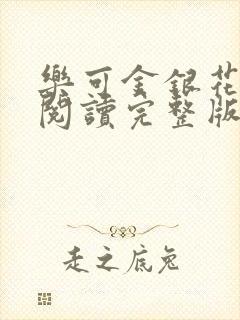 樂可金銀花
閱讀完整版
走之底兔